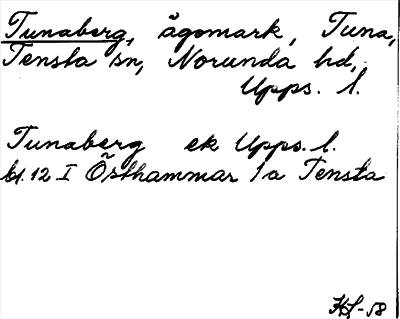 Tunaberg, ägomark, Tuna,
Tensta sn, Norunda hd,
Upps. l.
Tunaberg ek Upps. l.
bl. 12 I Östhammar 1a Tensta
HS-58